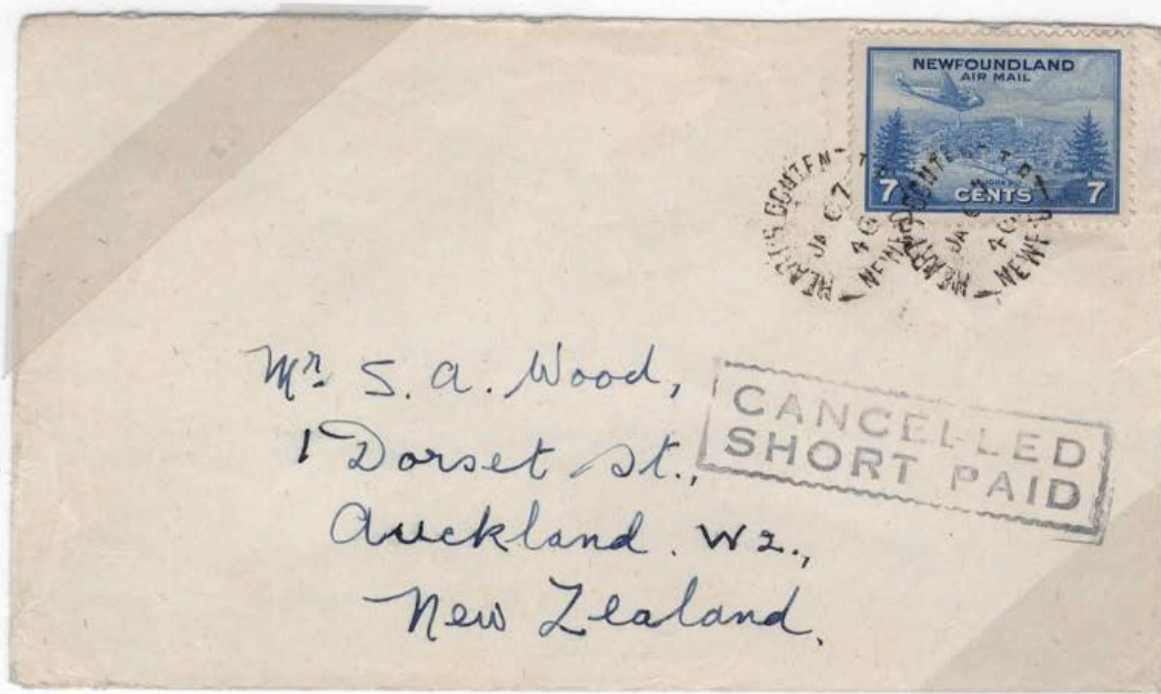 NEWFOUNDLAND
AIR MAIL
7 CENTS 7
HEART'S CONTENT T.B.
JA 07
46
NEWF
HEART'S CONTENT T.B.
JA
46
NEWF
Mr. S. A. Wood,
1 Dorset St.,
Auckland. W2.,
New Zealand.
CANCELLED
SHORT PAID